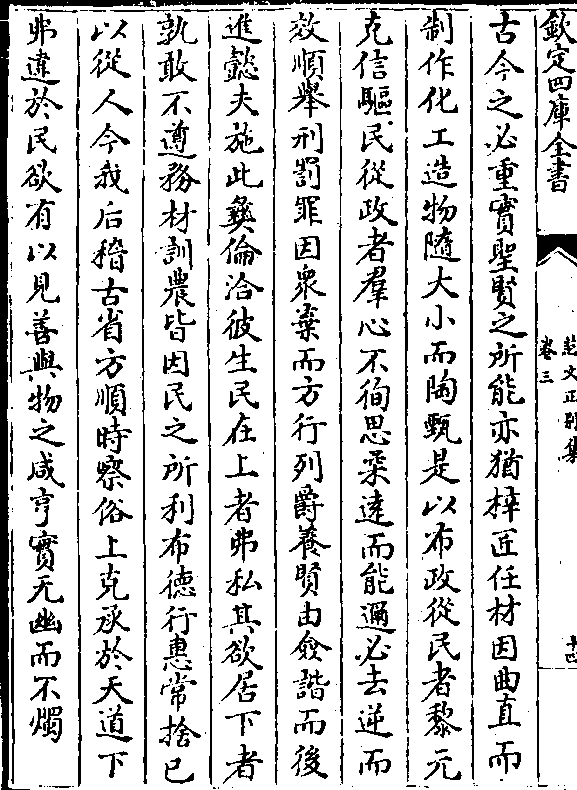 欽定四庫全書
范文正別集
卷三
十四
古今之必重實聖賢之所能亦猶梓匠任材因曲直而
制作化工造物隨大小而陶甄是以布政從民者黎元
克信驅民從政者羣心不徇思柔逺而能邇必去逆而
效順舉刑罰罪因衆棄而方行列爵養賢由僉諧而後
進懿夫施此彜倫洽彼生民在上者弗私其欲居下者
孰敢不遵務材訓農皆因民之所利布德行惠常捨已
以從人今我后稽古省方順時察俗上克承於天道下
弗違於民欲有以見善與物之咸亨實无幽而不燭